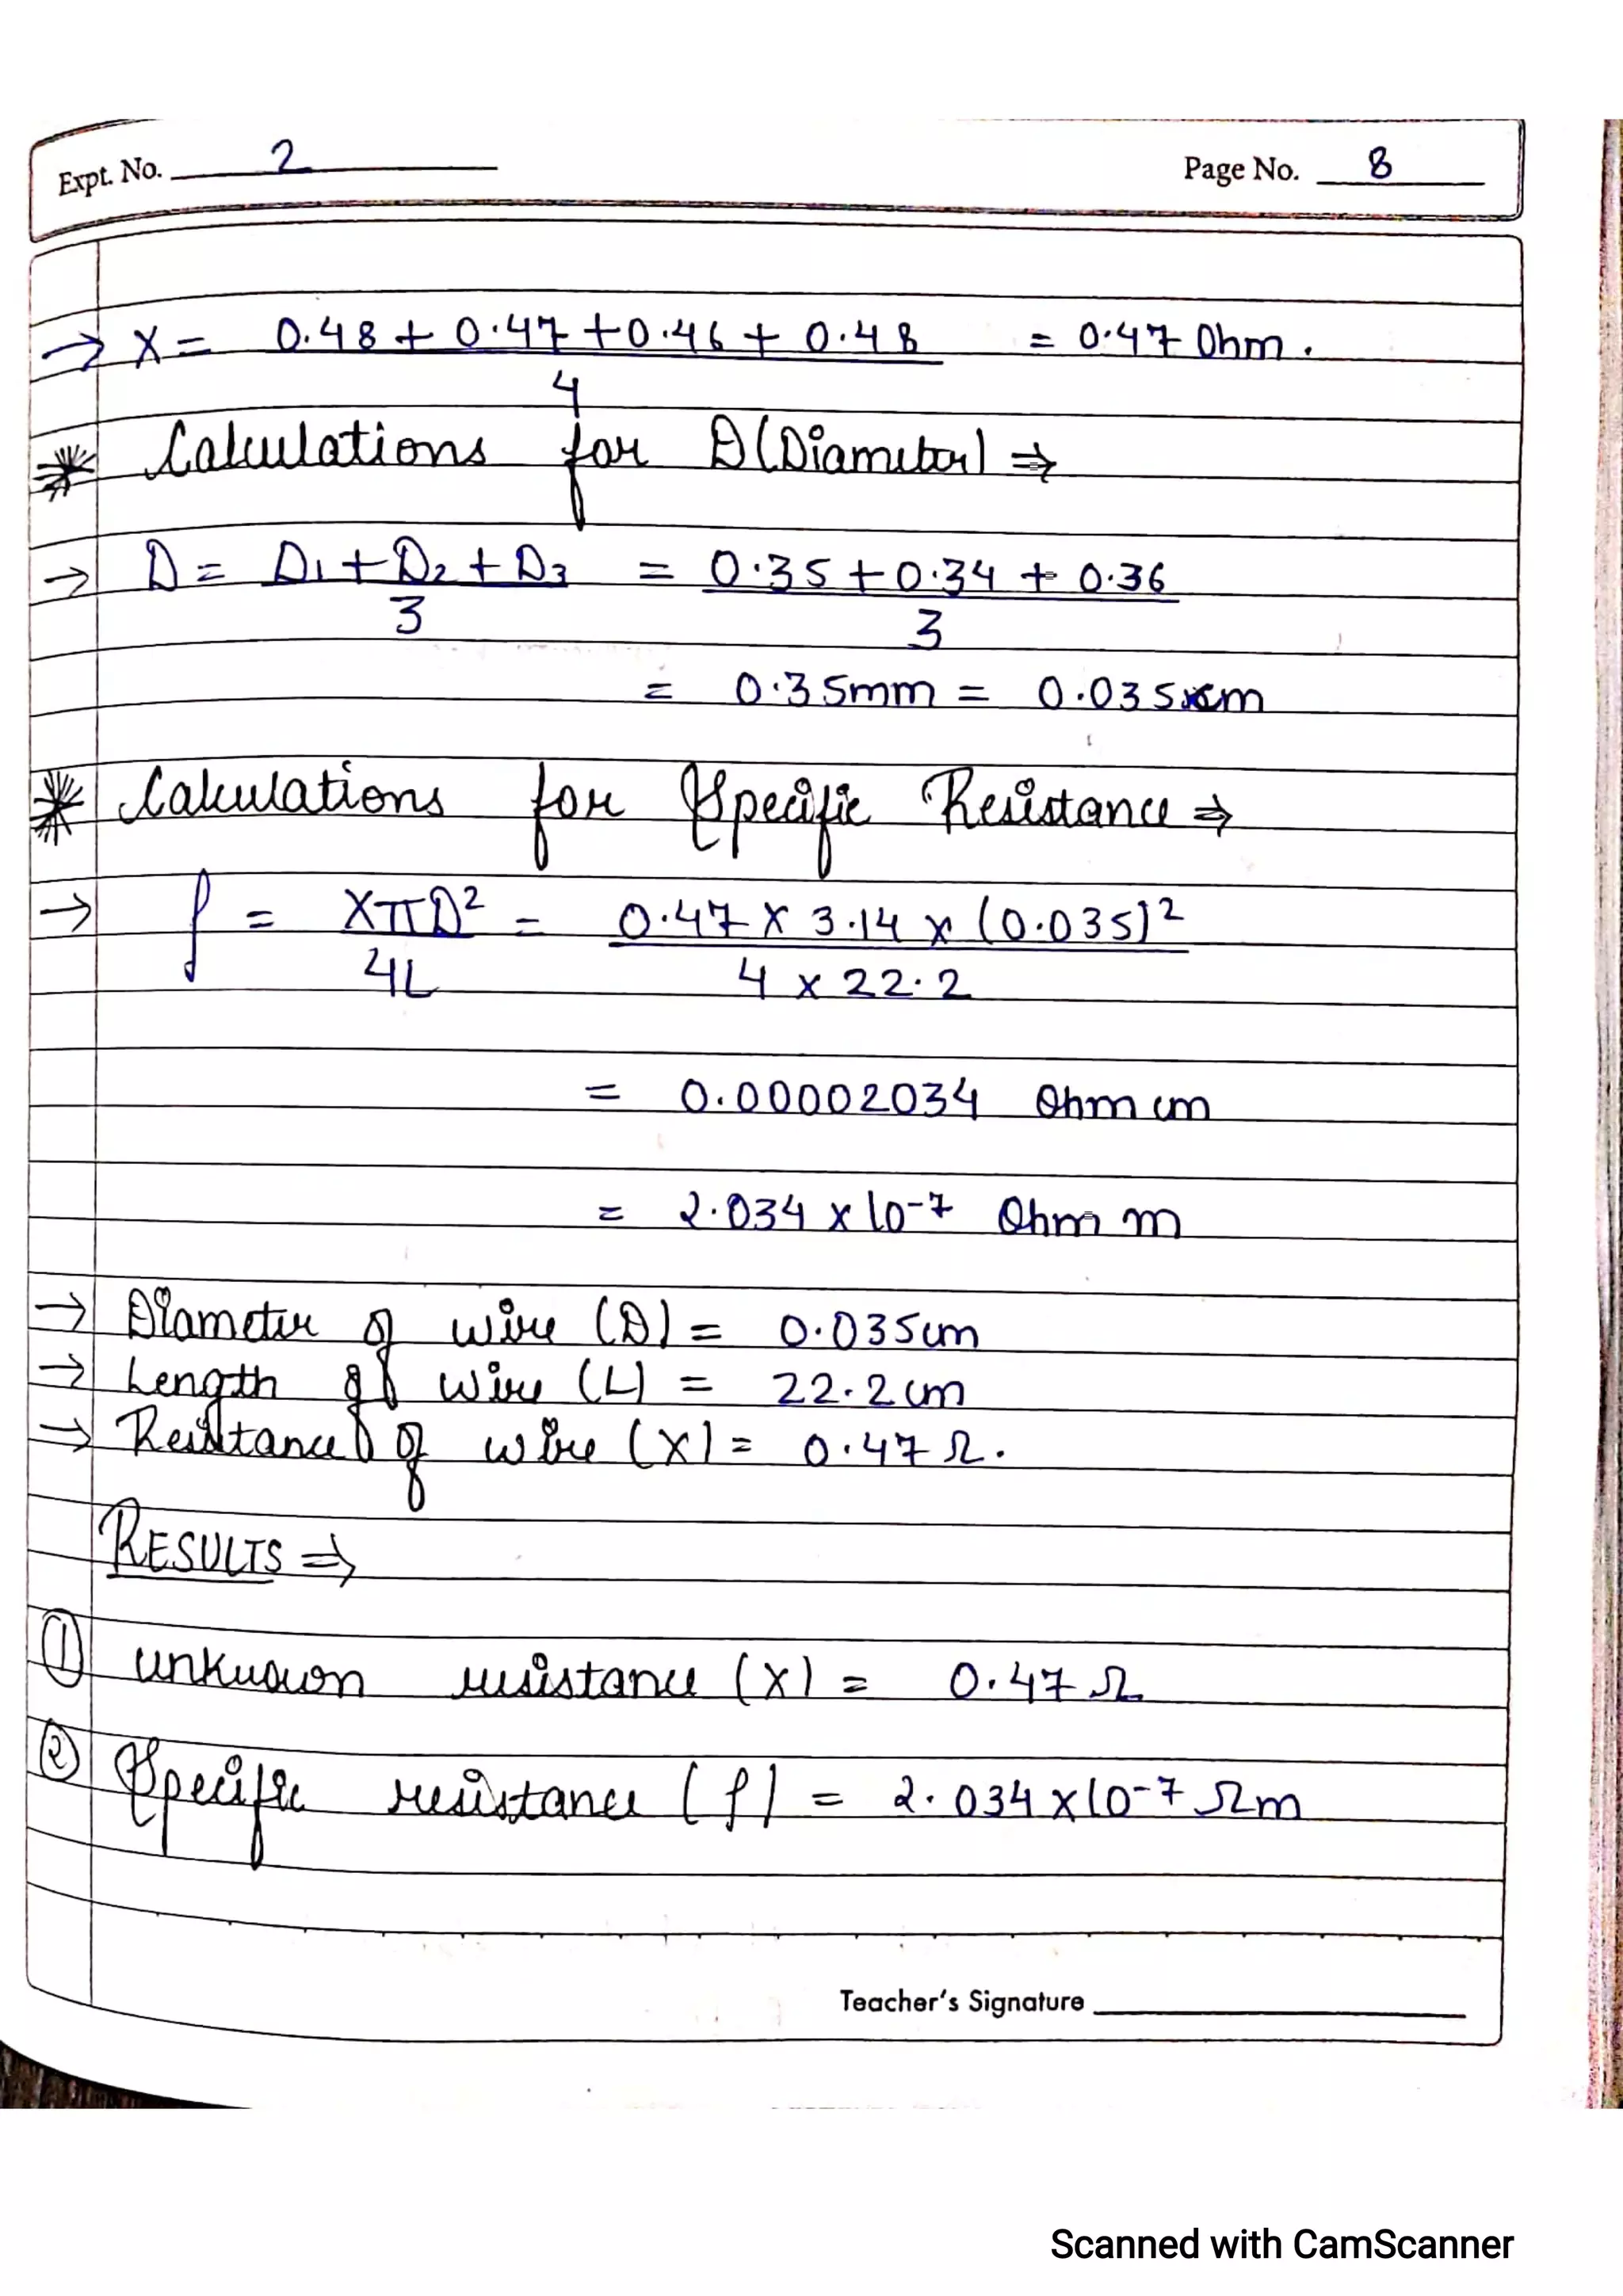 Expt. No. 2 Page No. 8
→ X = 0.48 + 0.47 + 0.46 + 0.48 = 0.47 Ohm.
4
* Calculations for D(Diameter) ⇒
→ D = D1 + D2 + D3 = 0.35 + 0.34 + 0.36
3 3
= 0.35mm = 0.035cm
* Calculations for Specific Resistance ⇒
→ ρ = XπD² = 0.47 × 3.14 × (0.035)²
4L 4 × 22.2
= 0.00002034 Ohm cm
= 2.034 × 10⁻⁷ Ohm m
→ Diameter of wire (D) = 0.035cm
→ Length of wire (L) = 22.2cm
→ Resistance of wire (X) = 0.47 Ω.
RESULTS ⇒
① unknown resistance (X) = 0.47 Ω
② Specific resistance (ρ) = 2.034 × 10⁻⁷ Ωm
Teacher's Signature
Scanned with CamScanner